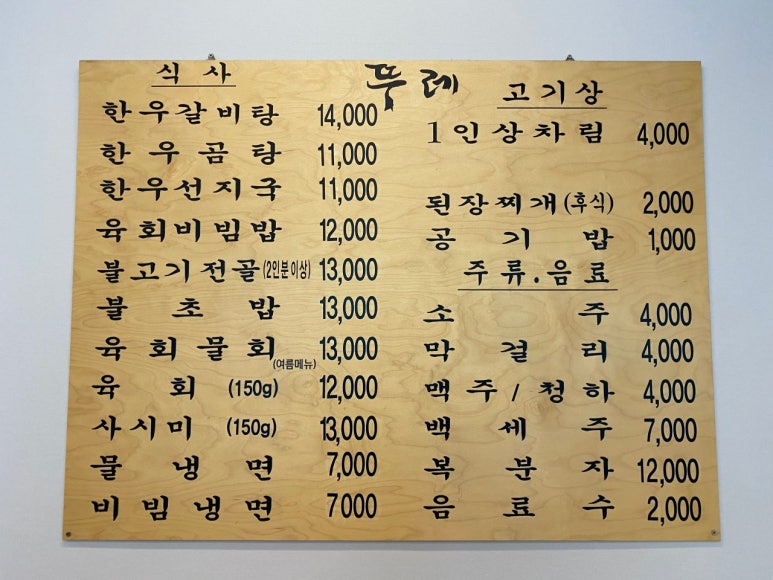 뚜레
식 사
한우갈비탕 14,000
한우곰탕 11,000
한우선지국 11,000
육회비빔밥 12,000
불고기전골(2인분이상) 13,000
불초밥 13,000
육회물회 13,000
(여름메뉴)
육회 (150g) 12,000
사시미 (150g) 13,000
물냉면 7,000
비빔냉면 7000
고기상
1인상차림 4,000
된장찌개(후식) 2,000
공기밥 1,000
주류.음료
소주 4,000
막걸리 4,000
맥주/청하 4,000
백세주 7,000
복분자 12,000
음료수 2,000